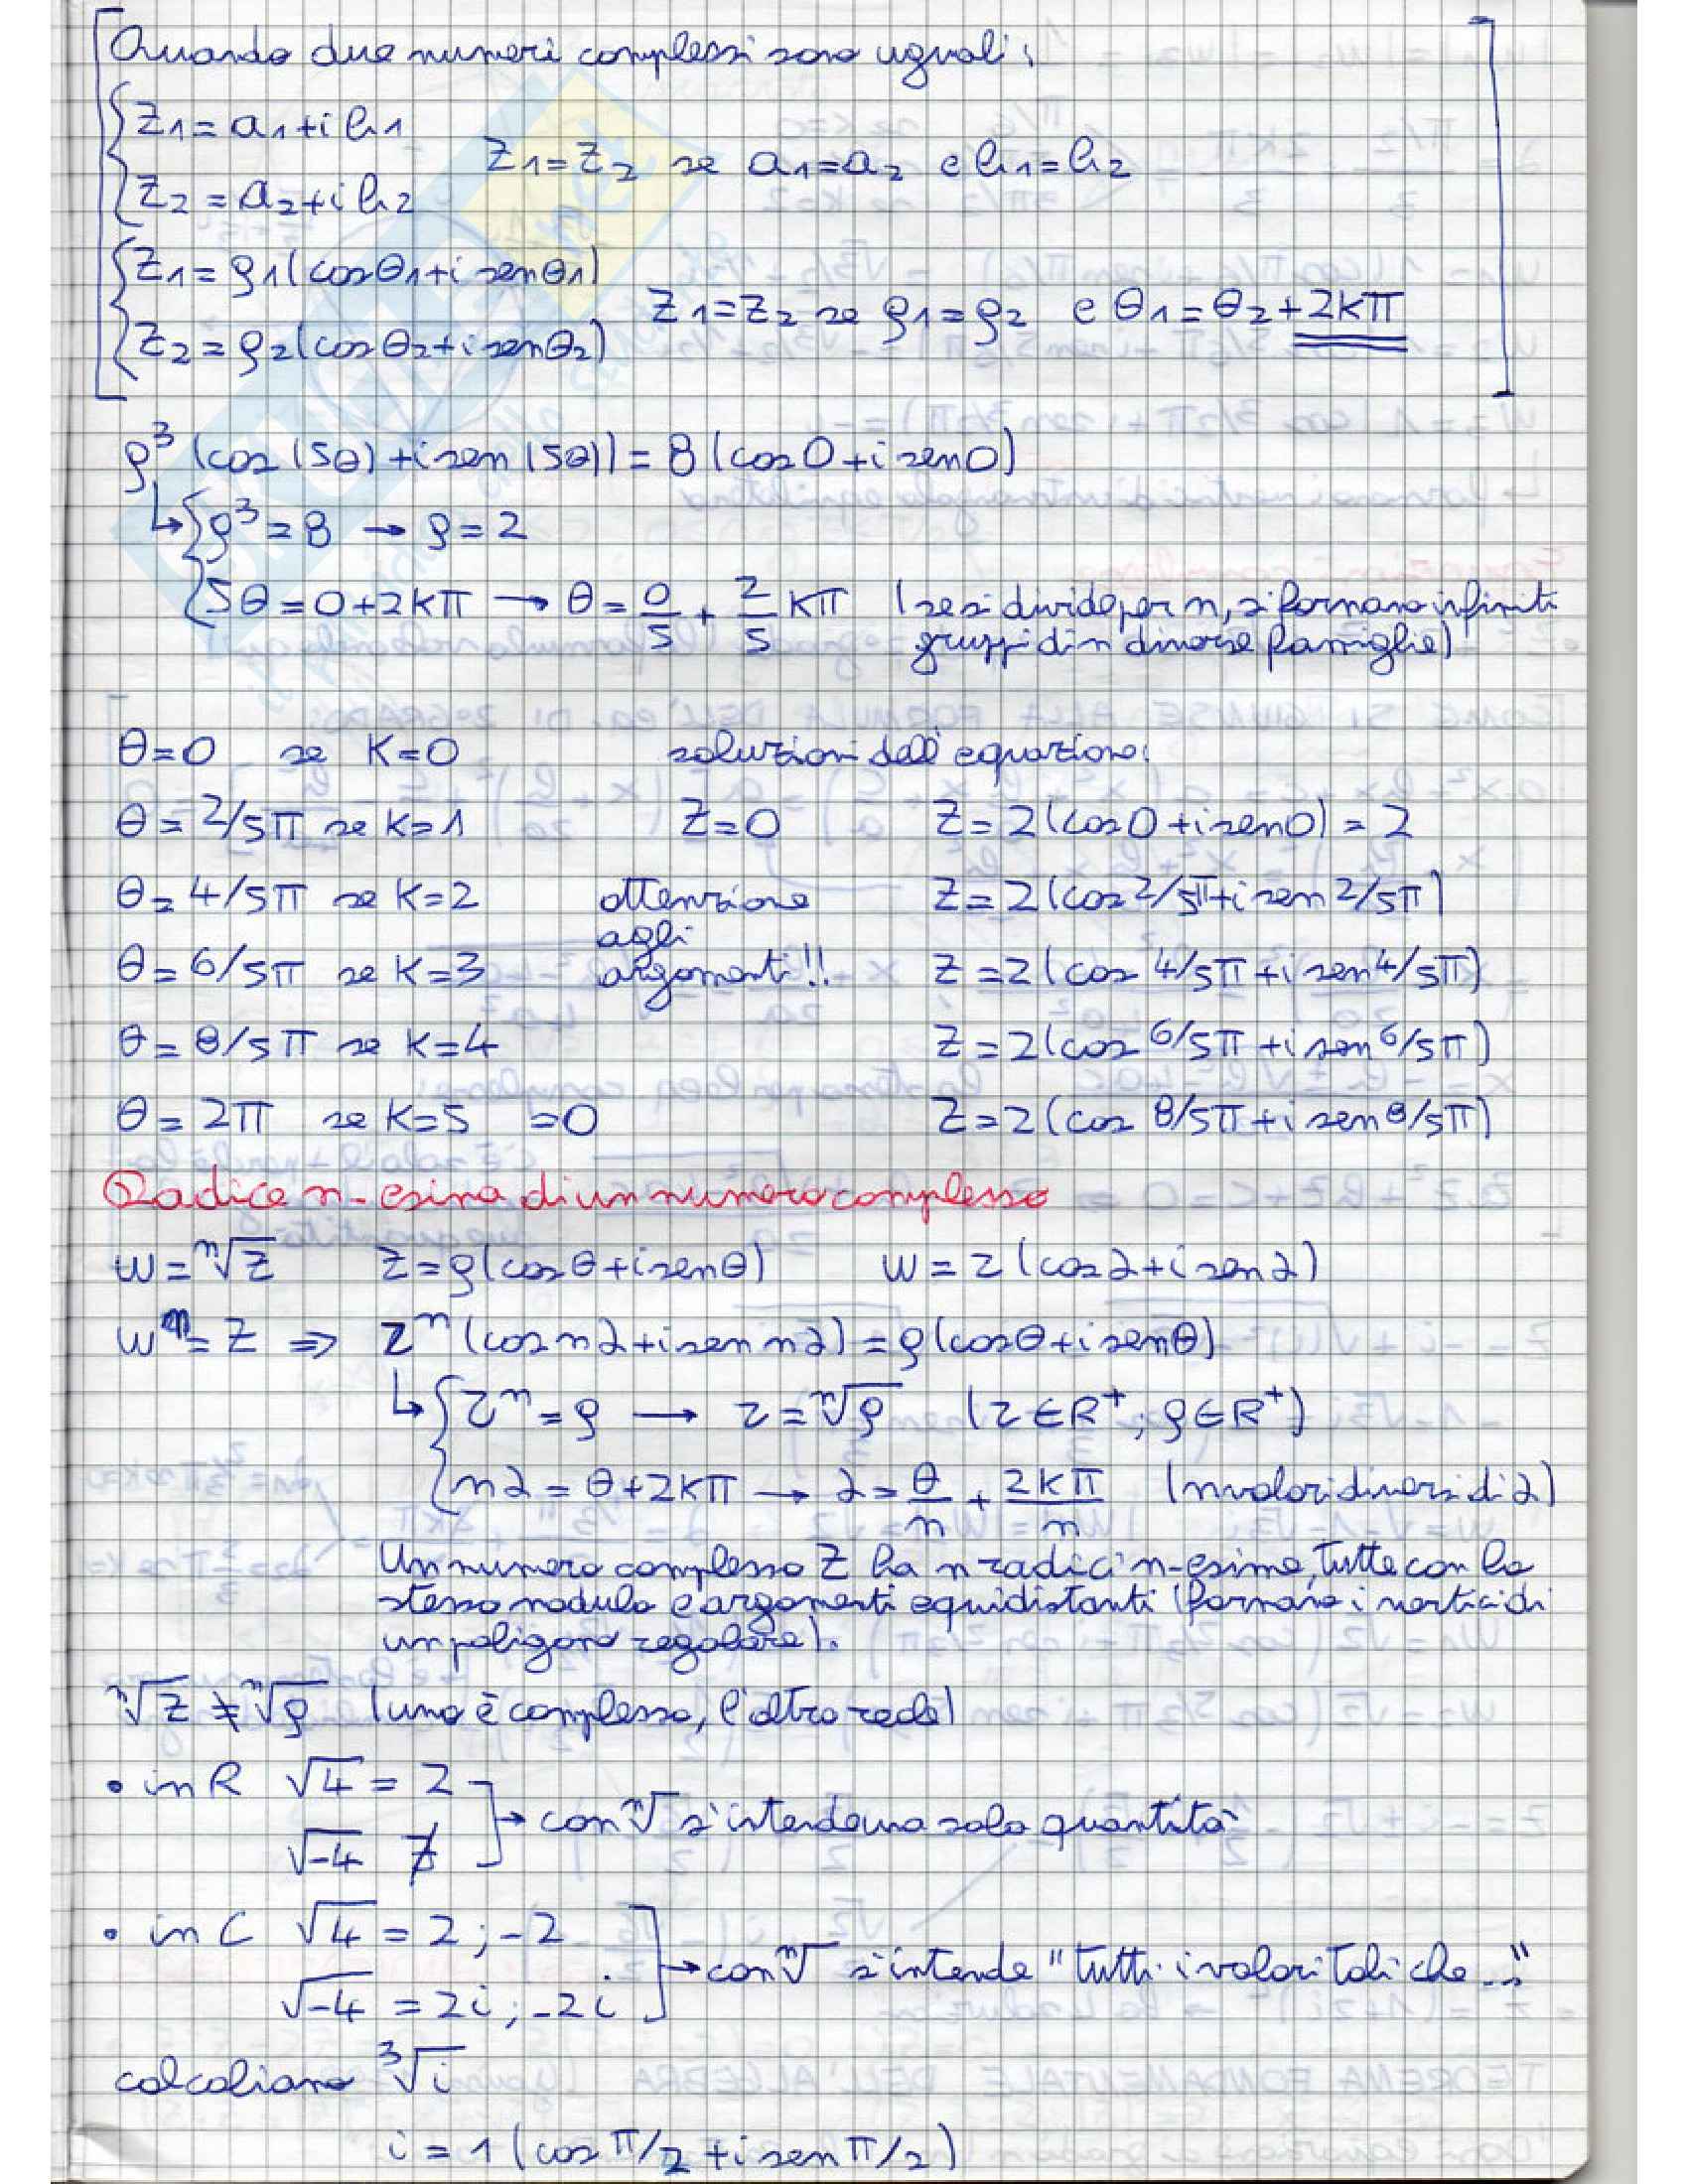 Quando due numeri complessi sono uguali:
z1=a1+ib1
z2=a2+ib2
z1=z2 se a1=a2 e b1=b2
z1=ρ1(cosθ1+isenθ1)
z2=ρ2(cosθ2+isenθ2)
z1=z2 se ρ1=ρ2 e θ1=θ2+2kπ
ρ³(cos(5θ)+isen(5θ))=8(cos0+isen0)
↳ ρ³=8 → ρ=2
5θ=0+2kπ → θ=0/5+2/5kπ (se si divide per n, si formano infiniti
gruppi di n diverse famiglie)
θ=0 se k=0 soluzioni dell'equazione:
θ=2/5π se k=1 z=0 z=2(cos0+isen0)=2
θ=4/5π se k=2 attenzione z=2(cos2/5π+isen2/5π)
agli
θ=6/5π se k=3 argomenti!! z=2(cos4/5π+isen4/5π)
θ=8/5π se k=4 z=2(cos6/5π+isen6/5π)
θ=2π se k=5 =0 z=2(cos8/5π+isen8/5π)
Radice n-esima di un numero complesso
w=ⁿ√z z=ρ(cosθ+isenθ) w=r(cosα+isenα)
wⁿ=z ⇒ rⁿ(cosnα+isennα)=ρ(cosθ+isenθ)
↳ rⁿ=ρ → r=ⁿ√ρ (r∈R⁺, ρ∈R⁺)
nα=θ+2kπ → α=θ/n+2kπ/n (n valori diversi di α)
Un numero complesso z ha n radici n-esime, tutte con lo
stesso modulo e argomenti equidistanti (formano i vertici di
un poligono regolare).
ⁿ√z ≠ ⁿ√ρ (uno è complesso, l'altro reale)
• in R √4=2
√-4 ∄
→ con ⁿ√ s'intende una sola quantità
• in C √4=2;-2
√-4=2i;-2i
→ con ⁿ√ s'intende "tutti i valori tali che..."
calcoliamo ³√i
i=1(cosπ/2+isenπ/2)